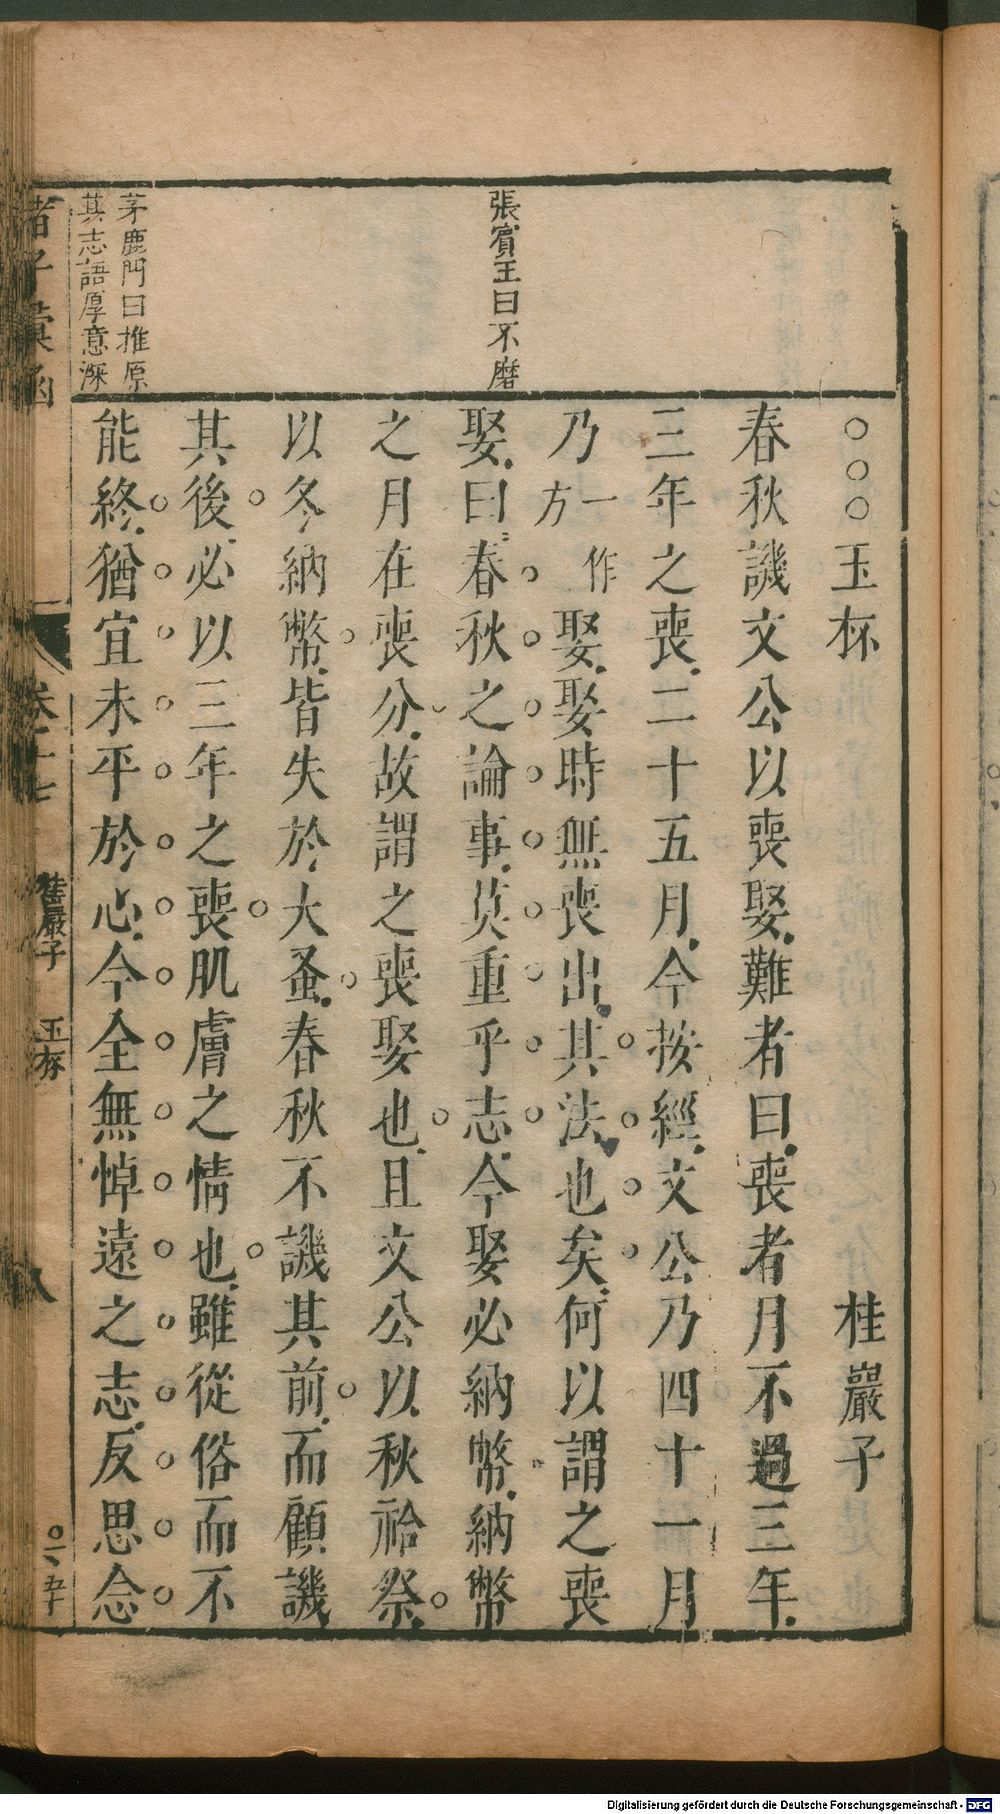 張賓王曰不磨
茅鹿門曰推原
其志語厚意深
○○○玉杯 桂巖子
春秋譏文公以喪娶難者曰喪者月不過三年
三年之喪二十五月今按經文公乃四十一月
乃一作方娶娶時無喪出其法也矣何以謂之喪
娶曰春秋之論事莫重乎志今娶必納幣納幣
之月在喪分故謂之喪娶也且文公以秋祫祭
以冬納幣皆失於大蚤春秋不譏其前而顧譏
其後必以三年之喪肌膚之情也雖從俗而不
能終猶宜未平於心今全無悼遠之志反思念
諸子彙函 卷二七 桂巖子 玉杯 八
Digitalisierung gefördert durch die Deutsche Forschungsgemeinschaft - DFG